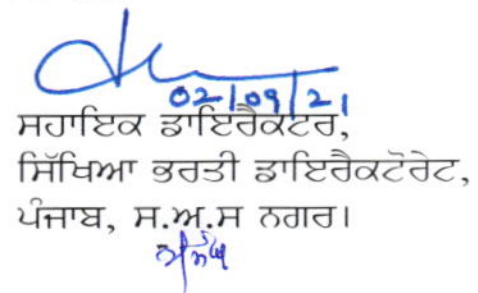 02/09/21
ਸਹਾਇਕ ਡਾਇਰੈਕਟਰ,
ਸਿੱਖਿਆ ਭਰਤੀ ਡਾਇਰੈਕਟੋਰੇਟ,
ਪੰਜਾਬ, ਸ.ਅ.ਸ ਨਗਰ।